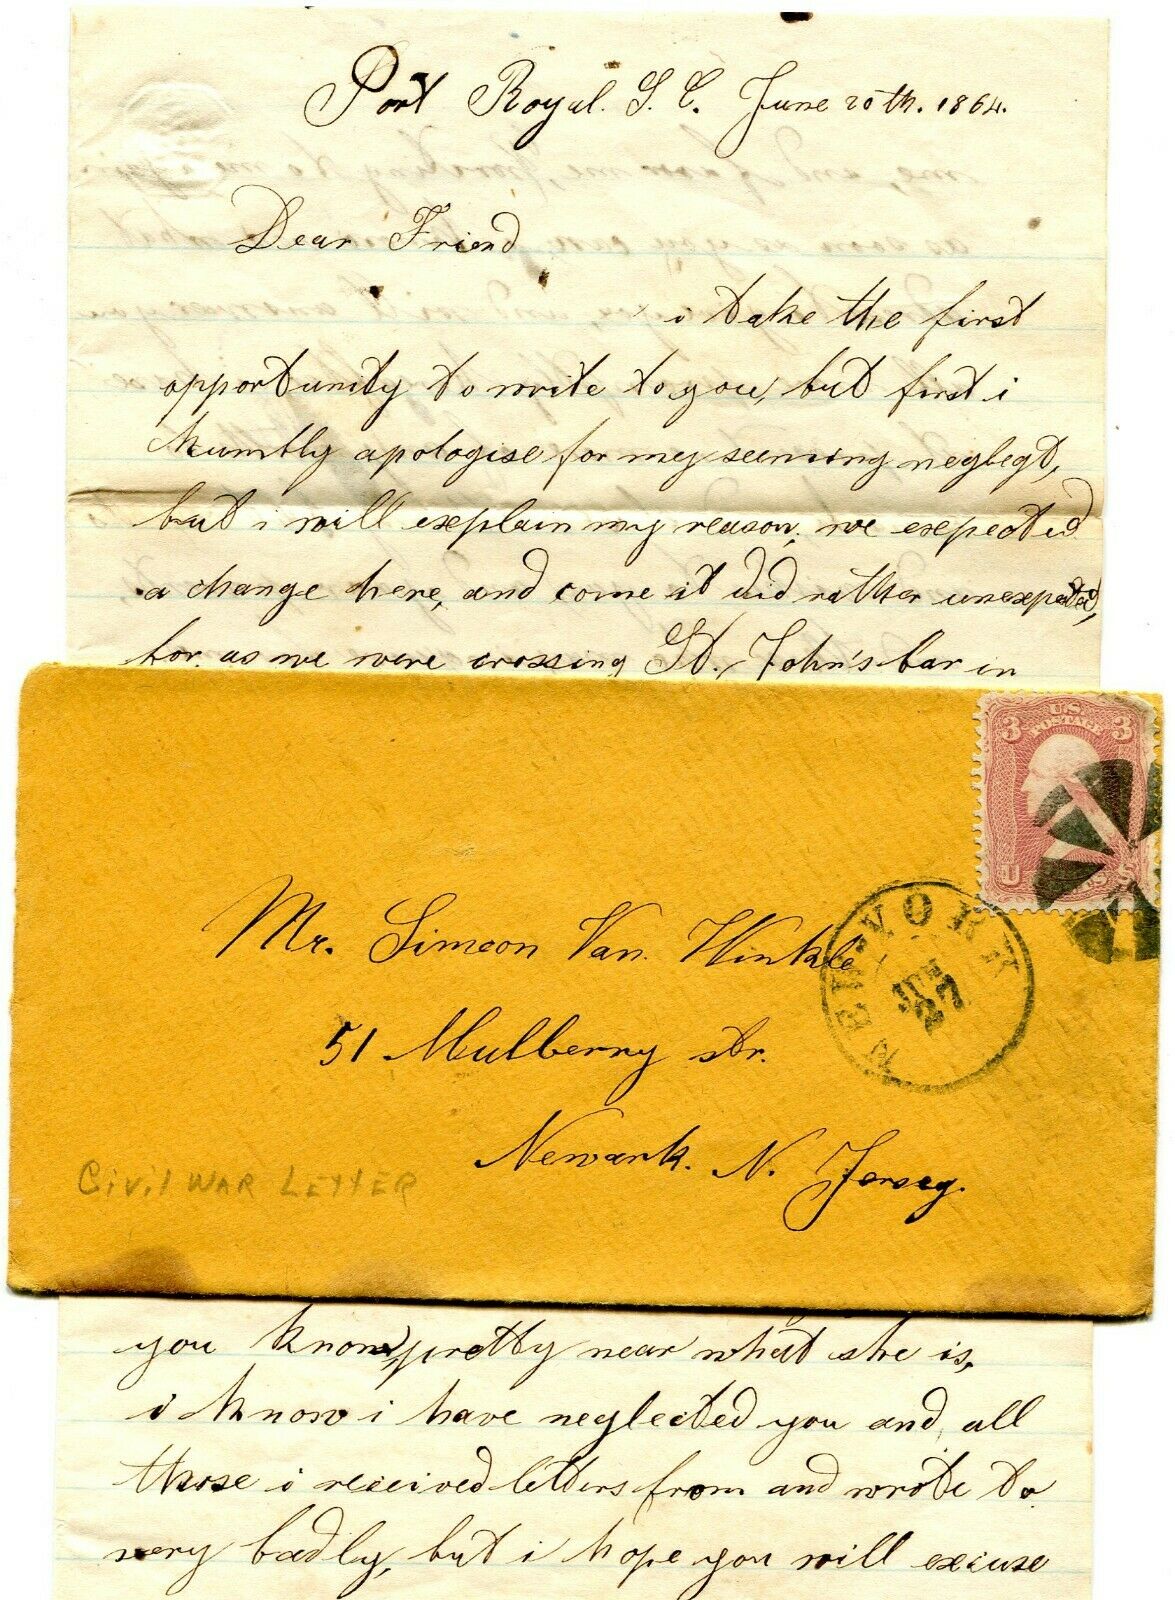 Port Royal. S. C. June 20th. 1864.
Dear Friend
i take the first
opportunity to write to you, but first i
humbly apologise for my seeming neglegt,
but i will explain my reason, we expected
a change here, and come it did rather unexpected,
for as we were crossing St. John's bar in
3 U.S. POSTAGE 3
U S
NEW-YORK
JUN
27
Mr. Simeon Van. Winkle
51 Mulberry str.
Newark. N. Jersey.
Civil WAR LETTER
you know, pretty near what she is,
i know i have neglected you and, all
those i received letters from and wrote to
very badly, but i hope you will excuse